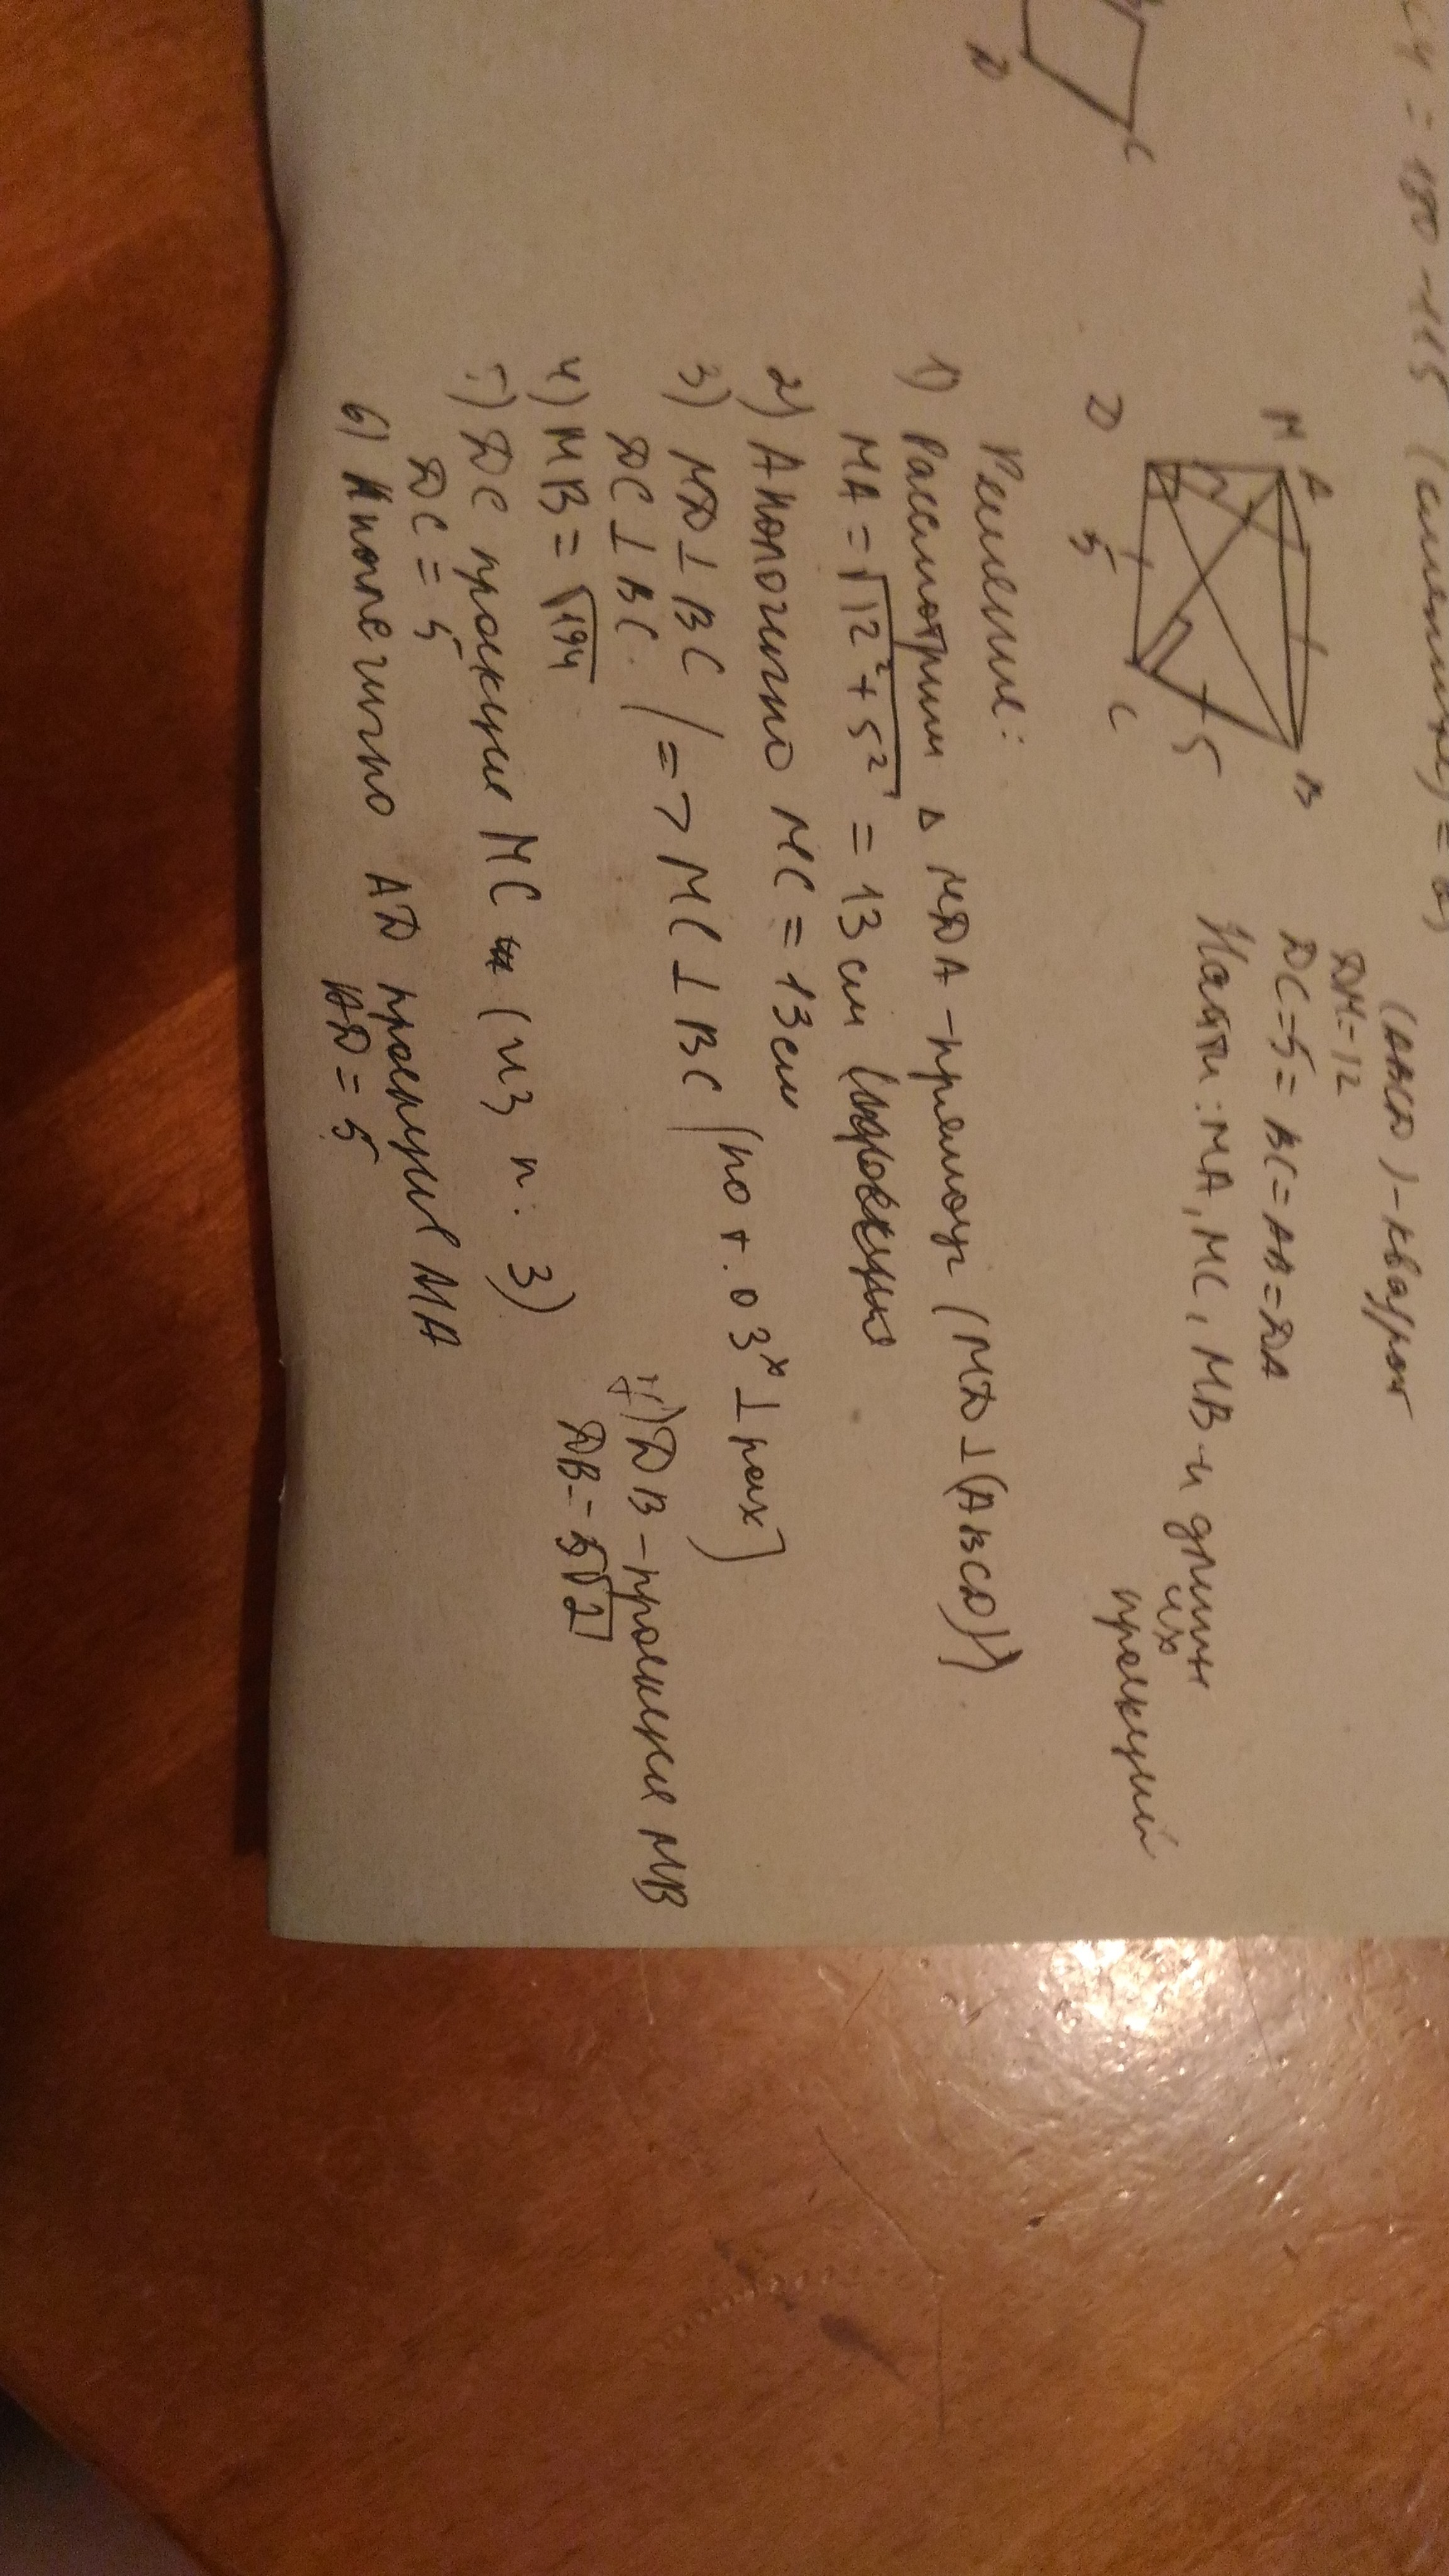 = 180 - 115
D
C
(ABCD) - квадрат
DM = 12
DC = 5 = BC = AB = DA
Найти: MA, MC, MB и длины
их
проекций
M
A
B
D
5
C
5
Решение:
1) Рассмотрим △ MDA - прямоуг (MD ⊥ (ABCD))
MA = √12² + 5² = 13 см
2) Аналогично MC = 13 см
3) MD ⊥ BC
DC ⊥ BC. / => MC ⊥ BC (по т. о 3х ⊥ рах)
4) MB = √194
5) DC проекция MC (из п. 3)
DC = 5
6) Аналогично AD проекция MA
AD = 5
7) DB - проекция MB
DB = 5√2